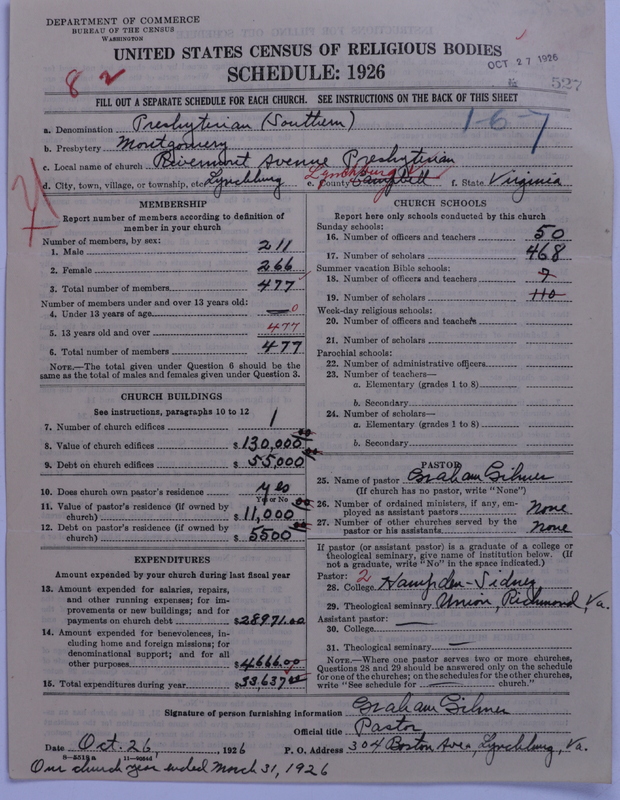 DEPARTMENT OF COMMERCE
BUREAU OF THE CENSUS
WASHINGTON
UNITED STATES CENSUS OF RELIGIOUS BODIES
SCHEDULE: 1926
OCT 27 1926
527
8 2
FILL OUT A SEPARATE SCHEDULE FOR EACH CHURCH. SEE INSTRUCTIONS ON THE BACK OF THIS SHEET
a. Denomination Presbyterian (Southern)
1-6-7
b. Presbytery Montgomery
c. Local name of church Rivermont Avenue Presbyterian
d. City, town, village, or township, etc. Lynchburg e. County Campbell Lynchburg f. State Virginia
MEMBERSHIP
Report number of members according to definition of
member in your church
Number of members, by sex:
1. Male 211
2. Female 266
3. Total number of members 477
Number of members under and over 13 years old:
4. Under 13 years of age — 0
5. 13 years old and over 477
6. Total number of members 477
NOTE.—The total given under Question 6 should be
same as the total of males and females given under Question 3.
CHURCH BUILDINGS
See instructions, paragraphs 10 to 12
7. Number of church edifices 1
8. Value of church edifices $130,000 00
9. Debt on church edifices $55,000 00
10. Does church own pastor's residence yes
Yes or No
11. Value of pastor's residence (if owned by
church) $11,000 00
12. Debt on pastor's residence (if owned by
church) $5500 00
EXPENDITURES
Amount expended by your church during last fiscal year
13. Amount expended for salaries, repairs,
and other running expenses; for im-
provements or new buildings; and for
payments on church debt $28971.00
14. Amount expended for benevolences, in-
cluding home and foreign missions; for
denominational support; and for all
other purposes $4666.00
15. Total expenditures during year $33,637 00
CHURCH SCHOOLS
Report here only schools conducted by this church
Sunday schools:
16. Number of officers and teachers 50
17. Number of scholars 468
Summer vacation Bible schools:
18. Number of officers and teachers 7
19. Number of scholars 110
Week-day religious schools:
20. Number of officers and teachers
21. Number of scholars
Parochial schools:
22. Number of administrative officers
23. Number of teachers—
a. Elementary (grades 1 to 8)
b. Secondary
24. Number of scholars—
a. Elementary (grades 1 to 8)
b. Secondary
PASTOR
25. Name of pastor Graham Gilmer
(If church has no pastor, write "None")
26. Number of ordained ministers, if any, em-
ployed as assistant pastors None
27. Number of other churches served by the
pastor or his assistants None
If pastor (or assistant pastor) is a graduate of a college or
theological seminary, give name of institution below. (If
not a graduate, write "No" in the space indicated.)
Pastor: 2
28. College Hampden-Sidney
29. Theological seminary Union, Richmond, Va.
Assistant pastor:
30. College —
31. Theological seminary —
NOTE.—Where one pastor serves two or more churches,
Questions 28 and 29 should be answered only on the schedule
for one of the churches; on the schedules for the other churches,
write "See schedule for — church."
Signature of person furnishing information Graham Gilmer
Official title Pastor
Date Oct. 26, 1926 P. O. Address 304 Boston Ave., Lynchburg, Va.
Our church year ended March 31, 1926